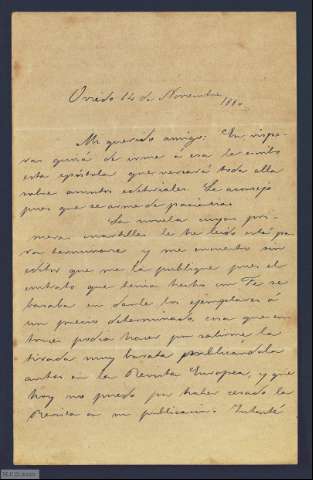 Oviedo 14 de Noviembre 1880.
Mi querido amigo: En víspe-
ras quizá de irme á esa le envio
esta epístola que versará toda ella
sobre asuntos editoriales. Le aconsejo
pues que se arme de paciencia.
La novela cuyas pri-
meras cuartillas le he leido está pa-
ra terminarse y me encuentro sin
editor que me la publique pues el
contrato que tenia hecho con Fe se
basaba en darle los ejemplares á
un precio determinado cosa que en-
tonces podia hacer por salirme la
tirada muy barata publicándola
antes en la Revista Europea, y que
hoy no puedo por haber cesado la
Revista en su publicacion. Intenté